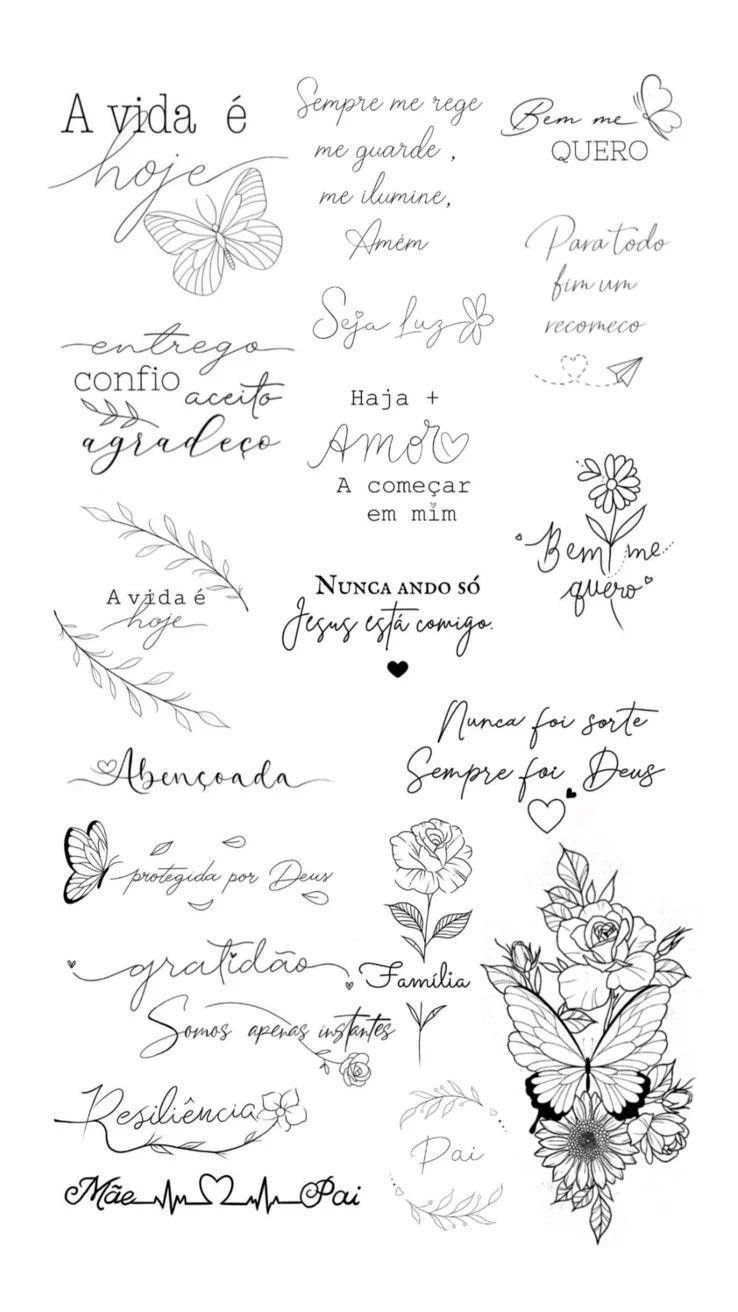 A vida é
hoje
Sempre me rege
me guarde ,
me ilumine,
Amém
Bem me
QUERO
Para todo
fim um
recomeco
Seja luz
entrego
confio aceito
agradeço
Haja +
Amor
A começar
em mim
Bem me
quero
A vida é
hoje
Nunca ando só
Jesus está comigo.
Nunca foi sorte
Sempre foi Deus
Abençoada
protegida por Deus
gratidão
Família
Somos apenas instantes
Resiliência
Pai
Mãe Pai